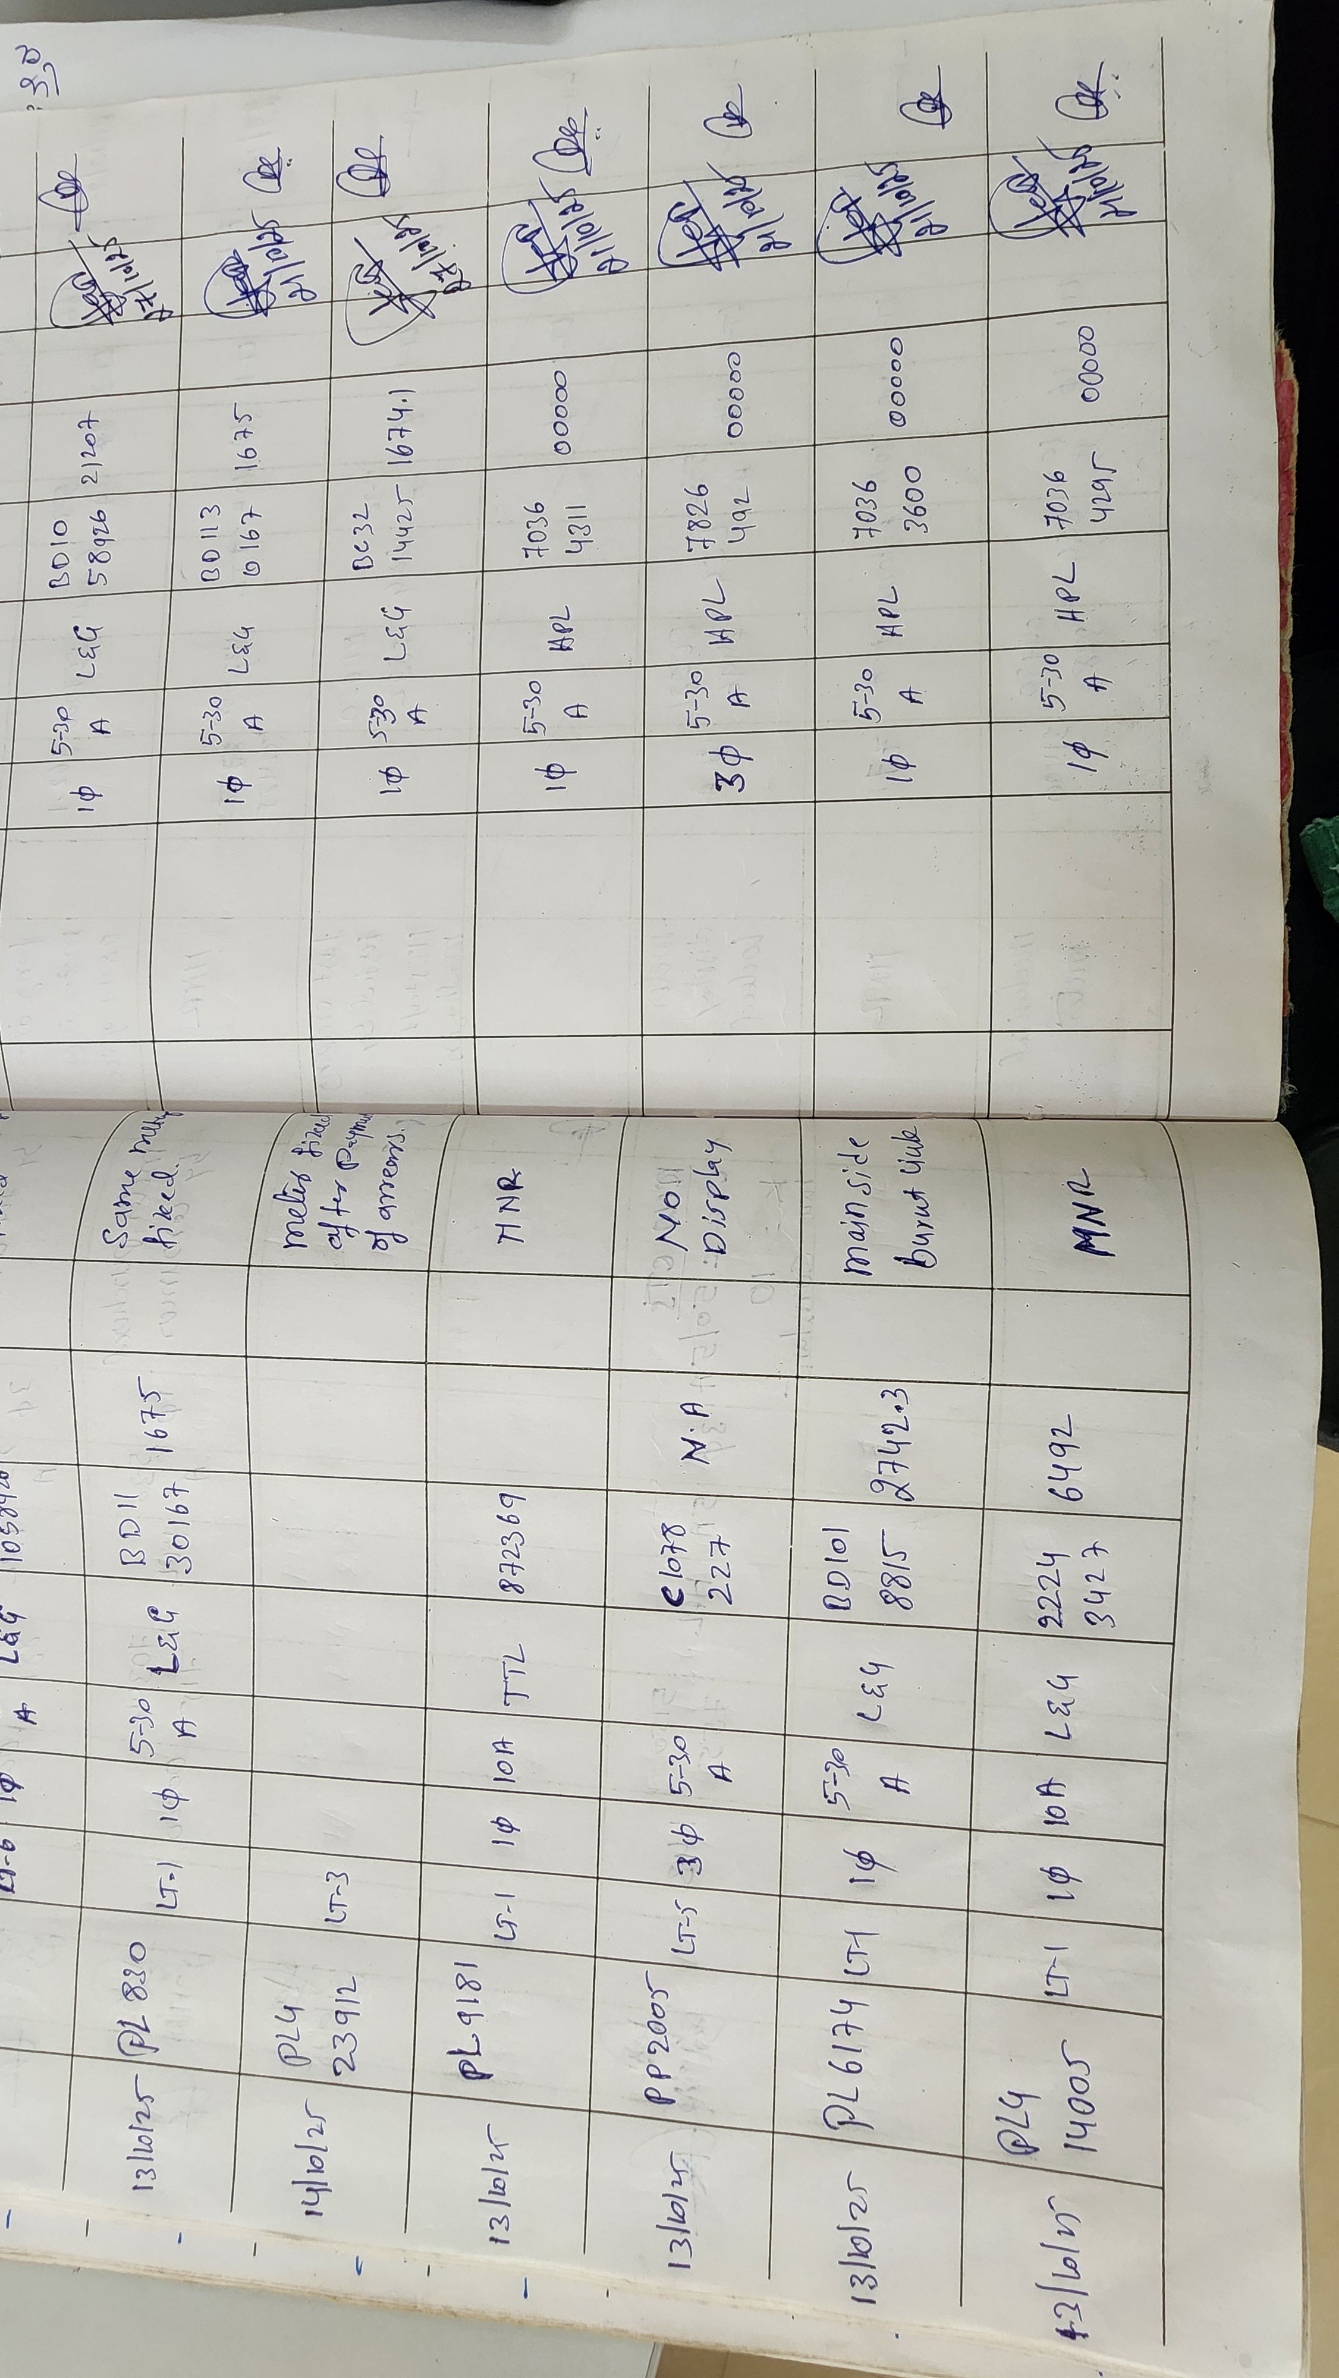 LT-6 1φ A L&G 1058926
13/10/25 PL 830 LT-1 1φ 5-30 A L&G BD11 30167 1675 Same
fixed.
14/10/25 PL4 23912 LT-3 meter fixed
after Payme
of arrears.
13/10/25 PL9181 LT-1 1φ 10A TTL 872369 MNR
13/10/25 PP2005 LT-5 3φ 5-30 A C1078 227 N.A NO
Display
13/10/25 PL6174 LT-1 1φ 5-30 A L&G BD101 8815 2742.3 main side
burnt
13/10/25 PL4 14005 LT-1 1φ 10A L&G 2224 3427 6492 MNR
1φ 5-30 A L&G BD10 58926 21207 27/10/25
1φ 5-30 A L&G BD113 0167 1675 21/10/25
1φ 5-30 A L&G BC32 14425 1674.1 27/10/25
1φ 5-30 A HPL 7036 4311 00000 21/10/25
3φ 5-30 A HPL 7826 492 00000 21/10/25
1φ 5-30 A HPL 7036 3600 00000 21/10/25
1φ 5-30 A HPL 7036 4295 00000 21/10/25